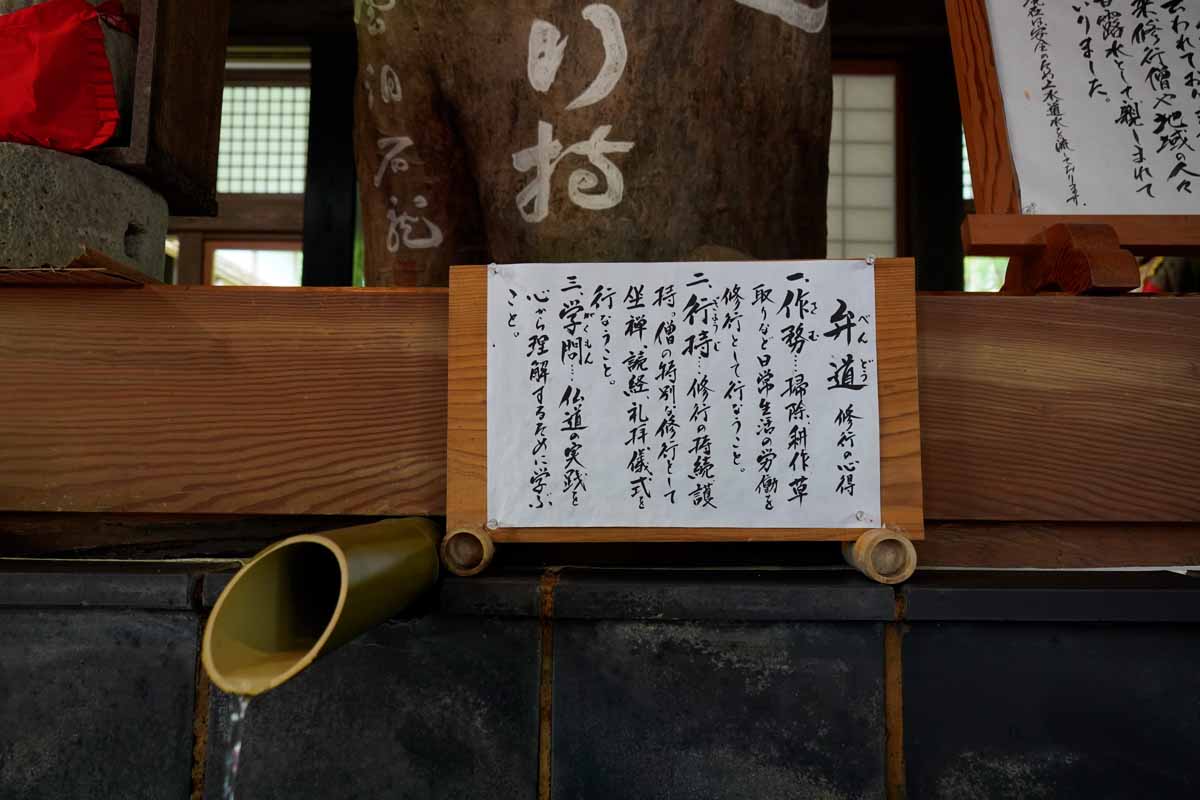 弁道 修行の心得
べんどう
一、作務…掃除、耕作、草
さむ
取りなど日常生活の労働を
修行として行なうこと。
二、行持…修行の持続、護
ぎようじ
持。僧の特別な修行として
坐禅、読経、礼拝、儀式を
行なうこと。
三、学問…仏道の実践を
がくもん
心から理解するために学ぶ
こと。
行持
石龍
来修行僧や地域の人々
甘露水として親しまれて
いりました。